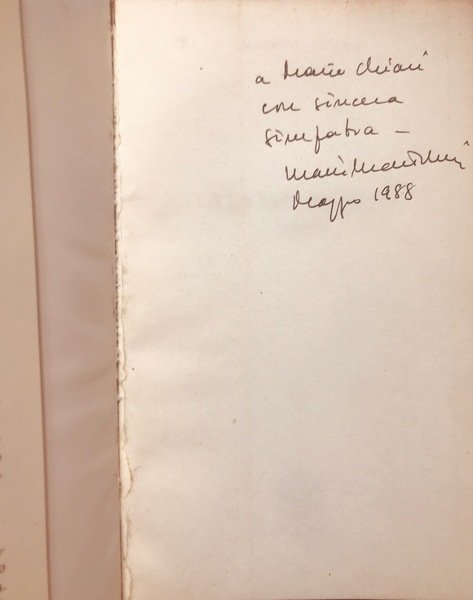 a Mario Chiari
con sincera
simpatia –
Maggio 1988